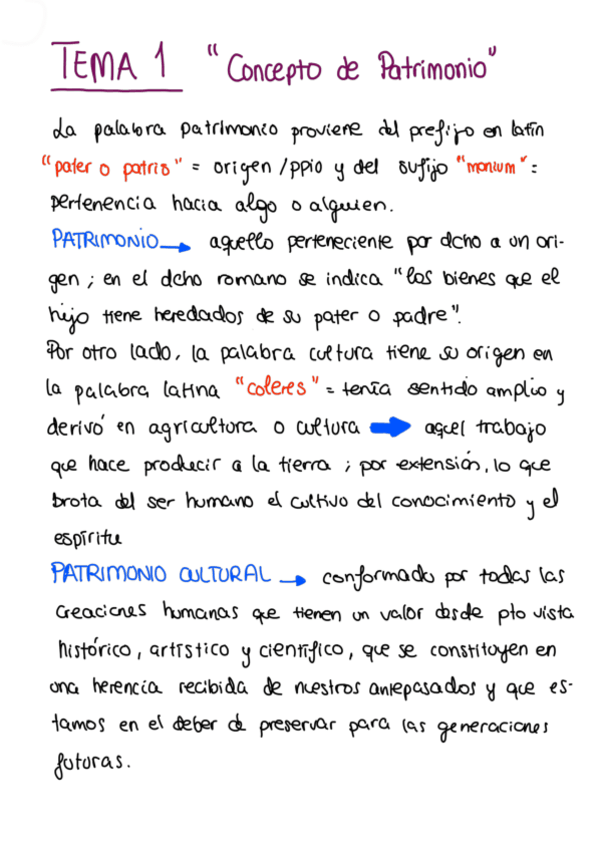 TEMA 1 "Concepto de Patrimonio"
La palabra patrimonio proviene del prefijo en latín
"pater o patris" = origen/ppio y del sufijo "monium" =
pertenencia hacia algo o alguien.
PATRIMONIO → aquello perteneciente por dcho a un ori-
gen; en el dcho romano se indica "los bienes que el
hijo tiene heredados de su pater o padre".
Por otro lado, la palabra cultura tiene su origen en
la palabra latina "coleres" = tenía sentido amplio y
derivó en agricultura o cultura → aquel trabajo
que hace producir a la tierra; por extensión, lo que
brota del ser humano el cultivo del conocimiento y el
espíritu
PATRIMONIO CULTURAL → conformado por todas las
creaciones humanas que tienen un valor desde pto vista
histórico, artístico y científico, que se constituyen en
una herencia recibida de nuestros antepasados y que es-
tamos en el deber de preservar para las generaciones
futuras.